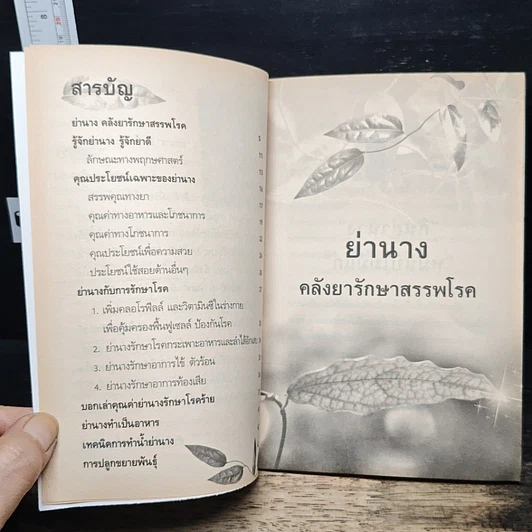 สารบัญ
ย่านาง คลังยารักษาสรรพโรค
รู้จักย่านาง รู้จักยาดี
ลักษณะทางพฤกษศาสตร์
คุณประโยชน์เฉพาะของย่านาง
สรรพคุณทางยา
คุณค่าทางอาหารและโภชนาการ
คุณค่าทางโภชนาการ
คุณประโยชน์เพื่อความสวย
ประโยชน์ใช้สอยด้านอื่นๆ
ย่านางกับการรักษาโรค
1. เพิ่มคลอโรฟีลล์ และวิตามินซีในร่างกาย
เพื่อคุ้มครองฟื้นฟูเซลล์ ป้องกันโรค
2. ย่านางรักษาโรคกระเพาะอาหารและลำไส้อักเสบ
3. ย่านางรักษาอาการไข้ ตัวร้อน
4. ย่านางรักษาอาการท้องเสีย
บอกเล่าคุณค่าย่านางรักษาโรคร้าย
ย่านางทำเป็นอาหาร
เทคนิคการทำน้ำย่านาง
การปลูกขยายพันธุ์
ย่านาง
คลังยารักษาสรรพโรค